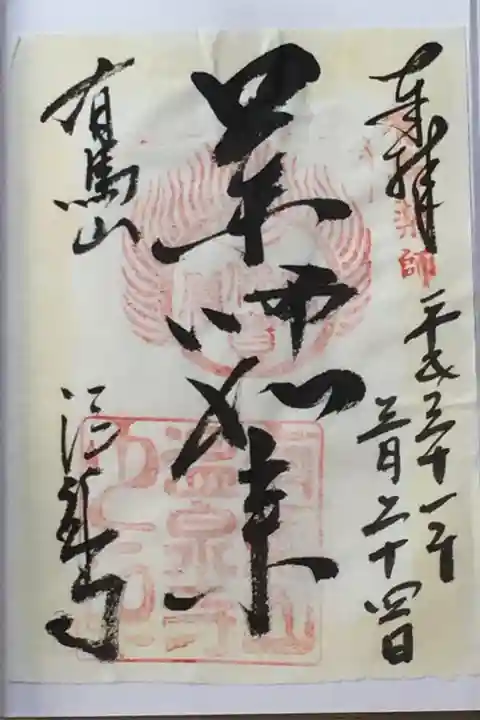 奉拝
薬師
平成三十一年
三月二十四日
薬師如来
有馬山
温泉寺